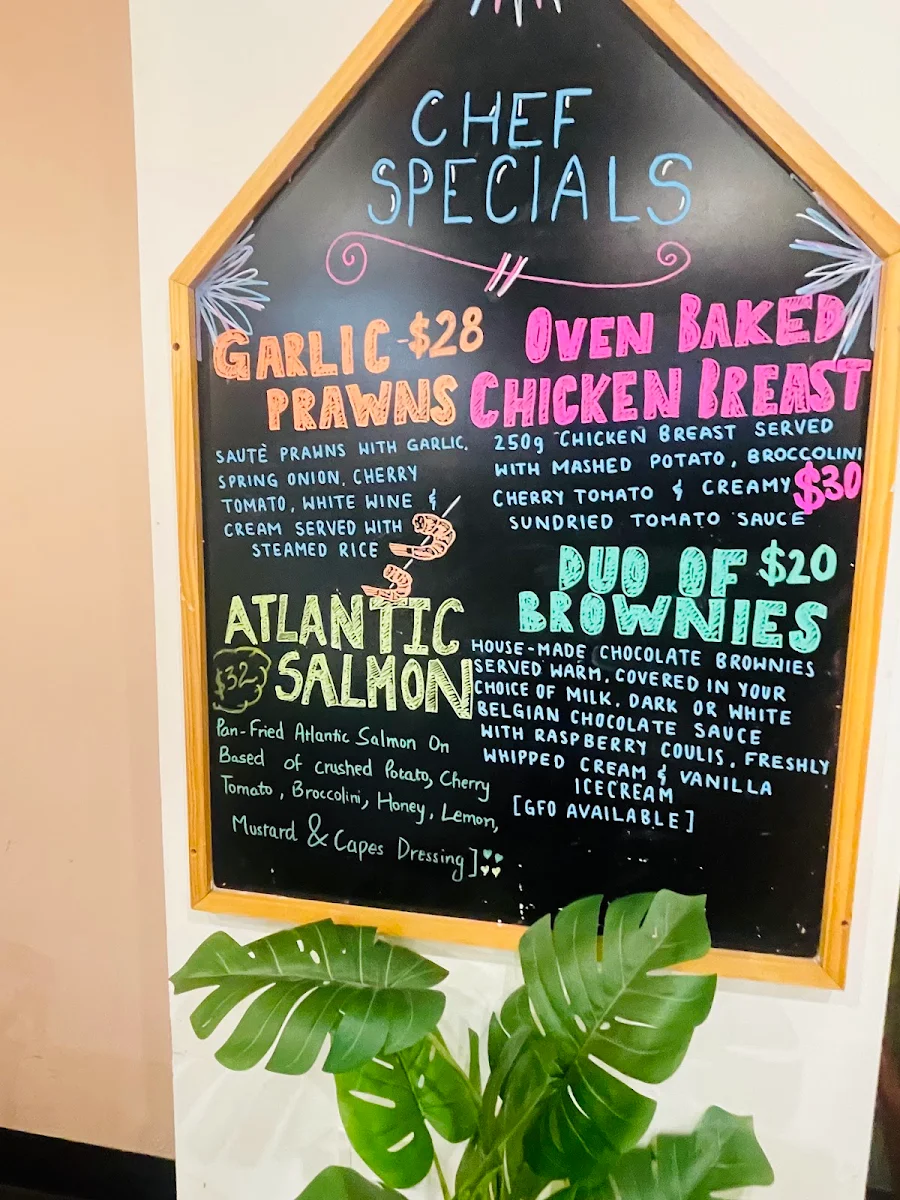 CHEF
SPECIALS
GARLIC -$28
PRAWNS
SAUTÈ PRAWNS WITH GARLIC,
SPRING ONION, CHERRY
TOMATO, WHITE WINE &
CREAM SERVED WITH
STEAMED RICE
ATLANTIC
$32 SALMON
Pan-Fried Atlantic Salmon On
Based of crushed Potato, Cherry
Tomato, Broccolini, Honey, Lemon,
Mustard & Capes Dressing]
OVEN BAKED
CHICKEN BREAST
250g CHICKEN BREAST SERVED
WITH MASHED POTATO, BROCCOLINI
CHERRY TOMATO & CREAMY $30
SUNDRIED TOMATO SAUCE
DUO OF $20
BROWNIES
HOUSE-MADE CHOCOLATE BROWNIES
SERVED WARM, COVERED IN YOUR
CHOICE OF MILK, DARK OR WHITE
BELGIAN CHOCOLATE SAUCE
WITH RASPBERRY COULIS, FRESHLY
WHIPPED CREAM & VANILLA
ICECREAM
[GFO AVAILABLE]